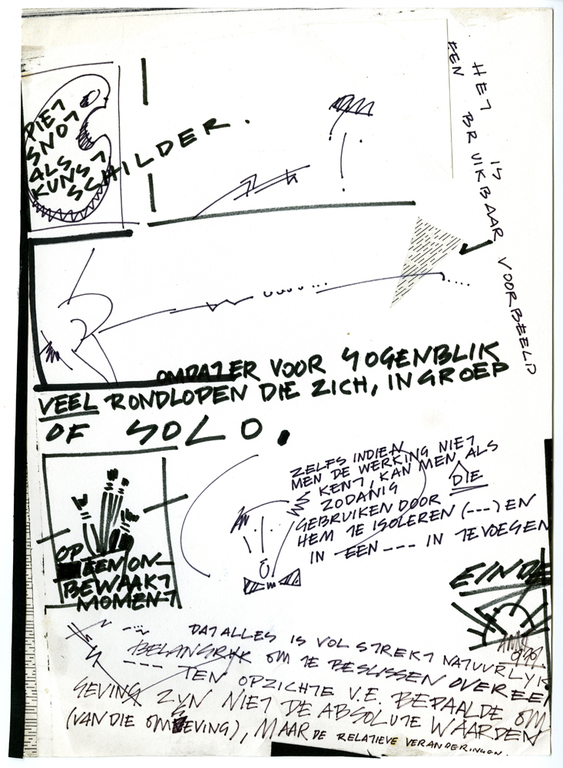 PIET
SNOT
ALS
KUNST
SCHILDER.
HET IS
EEN BRUIKBAAR VOORBEELD
OMDAT ER VOOR 'T OGENBLIK
VEEL RONDLOPEN DIE ZICH, IN GROEP
OF SOLO.
ZELFS INDIEN
MEN DE WERKING NIET
KENT, KAN MEN ALS
ZODANIG DIE
GEBRUIKEN DOOR
HEM TE ISOLEREN (---) EN
IN -EEN --- IN TE VOEGEN
OP EEN ON-
BEWAAKT
MOMENT
EINDE
DAT ALLES IS VOLSTREKT NATUURLYK
BELANGRYK OM TE BESLISSEN OVER EEN
--- TEN OPZICHTE V.E. BEPAALDE OM
GEVING ZYN NIET DE ABSOLUTE WAARDEN
(VAN DIE OMGEVING), MAAR DE RELATIEVE VERANDERINGEN.